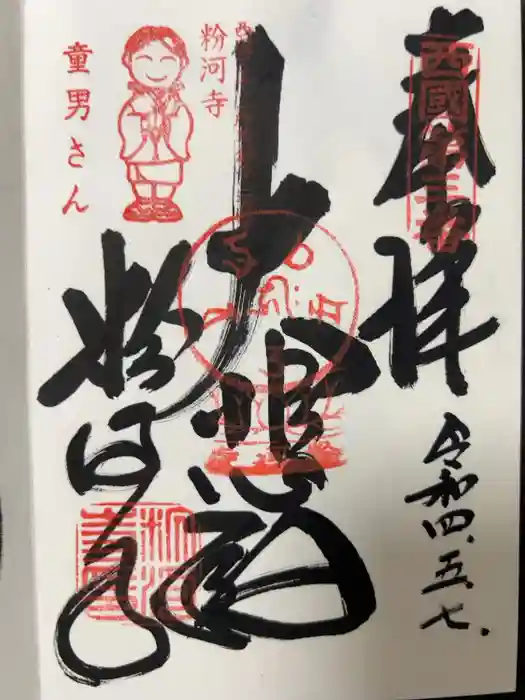 奉拝
西國第三番
令和四.五.七.
大悲殿
西国
粉河寺
粉河寺
童男さん